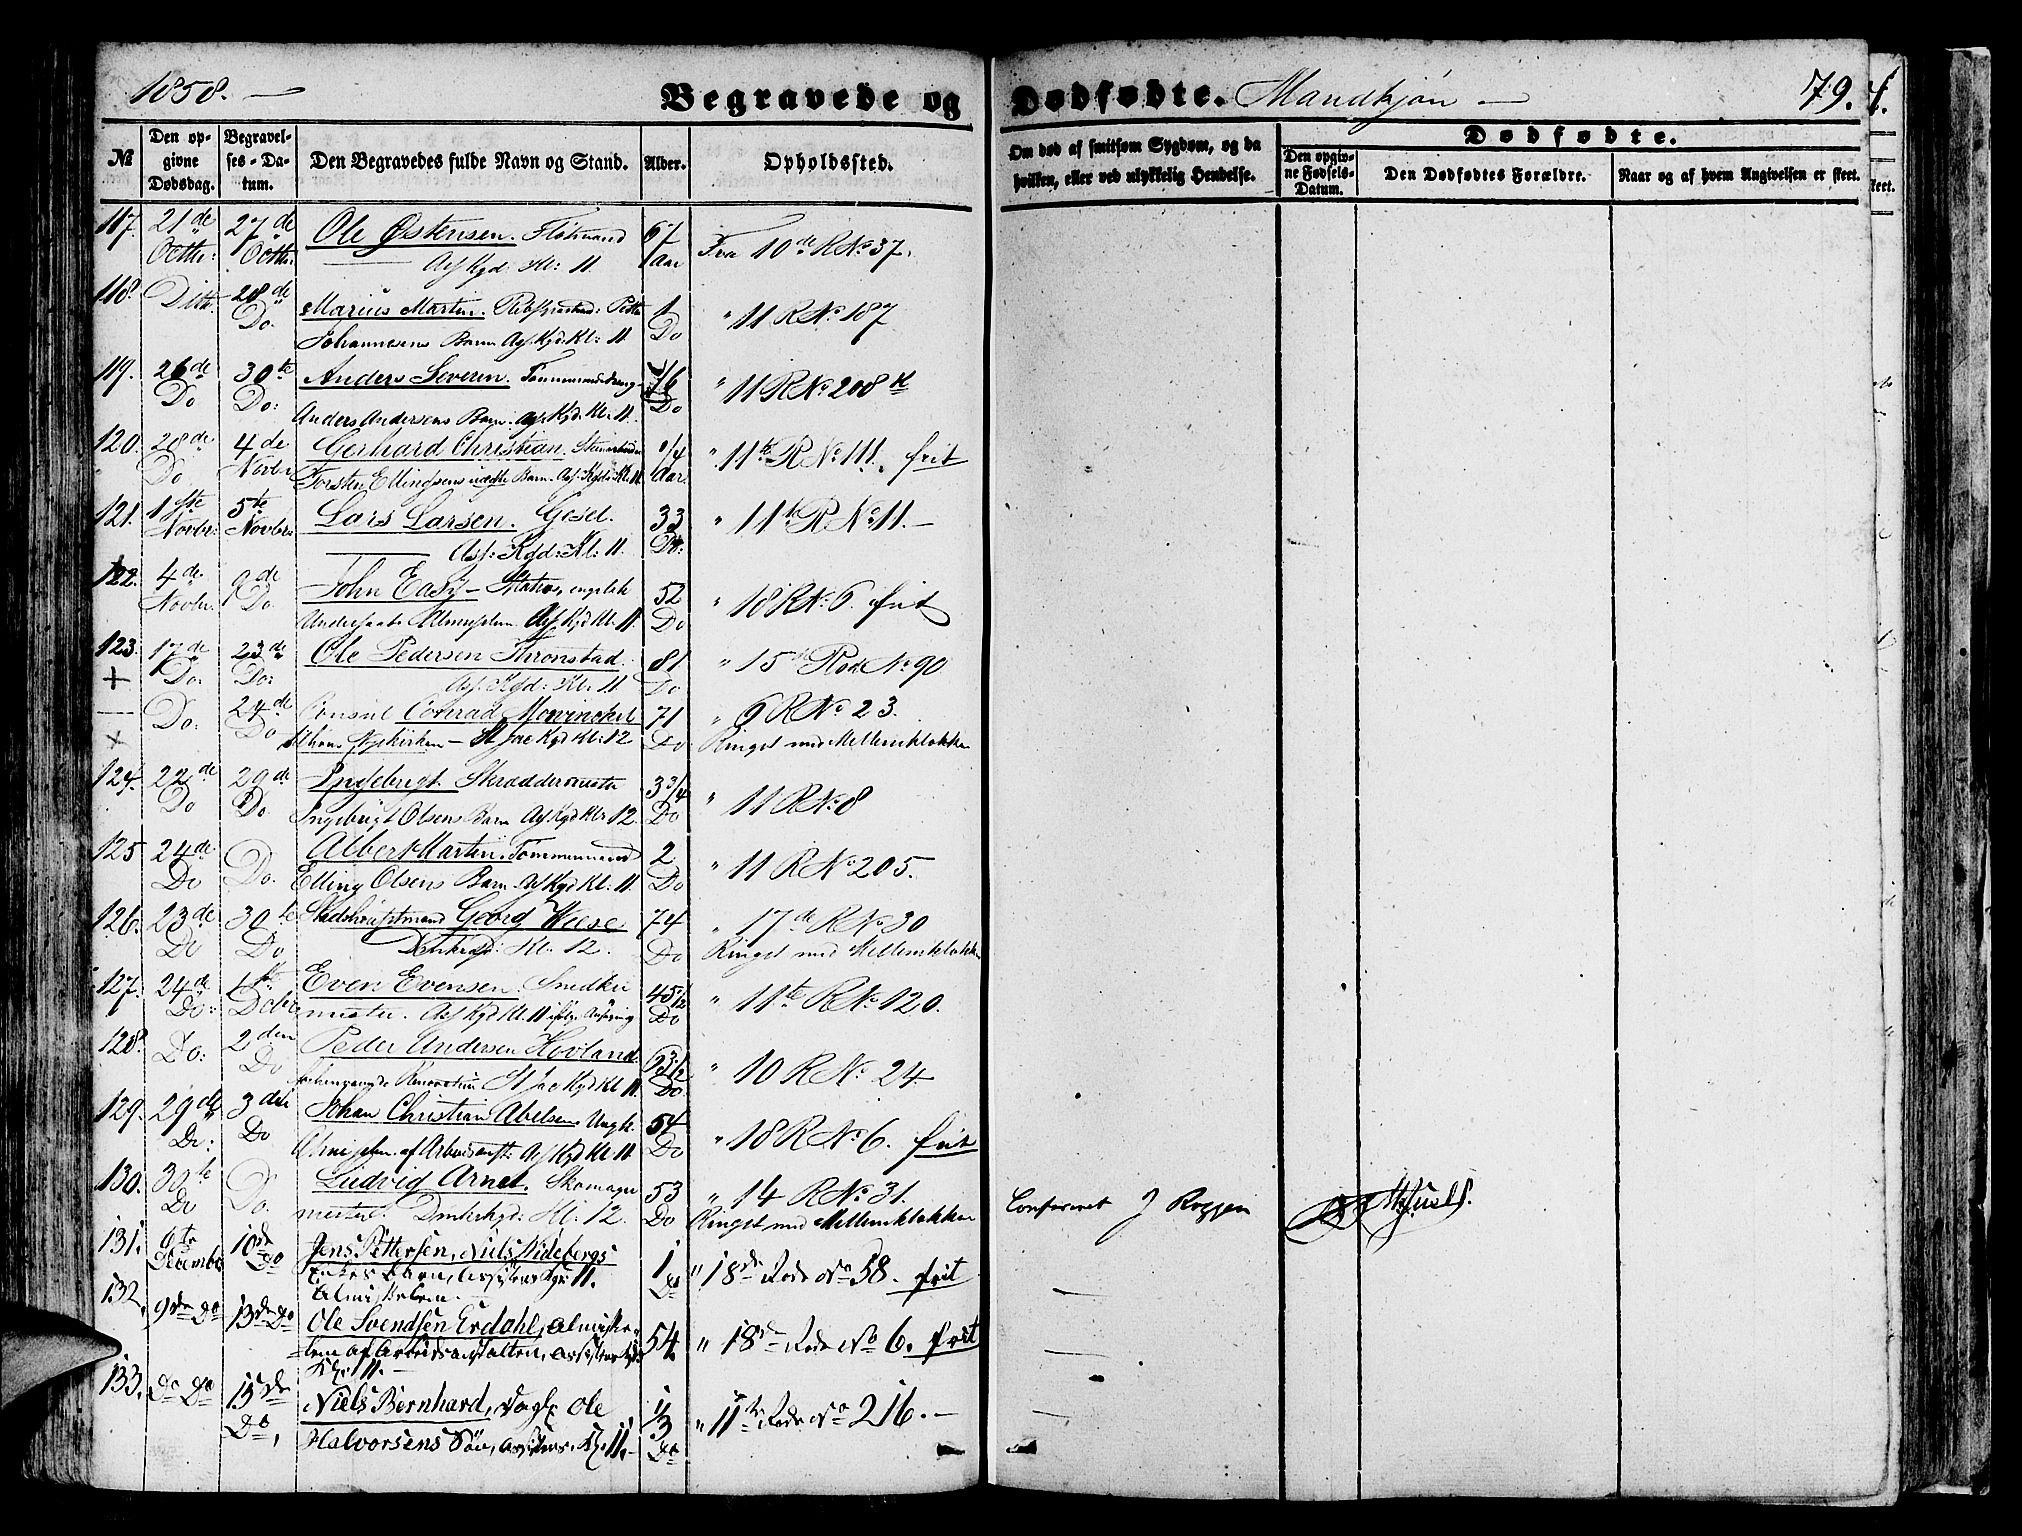 1858. — Begravede og Dødfødte. Mandkjøn — 79.
№ Den opgivne Dødsdag. Begravelses-Datum. Den Begravedes fulde Navn og Stand. Alder. Opholdssted. Om død af smitsom Sygdom, og da hvilken, eller ved ulykkelig Hendelse. Dødfødte. Den opgivne Fødsels-Datum. Den Dødfødtes Forældre. Naar og af hvem Angivelsen er skeet.
117. 21de 27de Ole Østensen. 67 Fra 10de R No 37.
Octbr: Octbr: Ass Kgd: Kl: 11. Aar
118. Ditto. 28de Marius Martin. 1 " 11 R No 187
Do. Johannesens Barn Ass Kgd. Kl: 11 Do
119. 26de 30te Anders Severin. 7/6 " 11 R No 208
Do Do: Anders Andersens Barn. Ass: Kgd. Kl. 11. Do
120. 28de 4de Gerhard Christian. 1/4 " 11te R No 111. frit
Do Novbr Torsten Ellingsens uægte Barn. Ass: Kgd: Kl: 11 Aar
121. 1ste 5te Lars Larsen. Gesel. 33 " 11te R No 11. —
Novbr: Novbr: Ass: Kgd: Kl: 11. Do:
122. 4de 9de John Easy — Matros, engelsk 52 " 18 R No 6. frit
Novbr. Do. Undersaat Almisslem. Ass Kgd Kl: 11. Do
123. 17de 23de Ole Pedersen Thronstad. 81 " 15de Rode No 90
+ Do: Do: Ass: Kgd: Kl. 11 Do
— Do: 24de Consul Conrad Mowinckel 71 " 6 R No 23.
+ Do Nykirken — St Jac Kgd Kl: 12 Do Ringet med Mellemklokken
124. 22de 29de Ingebrigt. Skræddermester 3 3/4 " 11 R No 8
Do Do. Ingebrigt Olsens Barn Ass Kgd Kl: 12. Do
125 24de Do. Albert Martin. Tømmermand 2 " 11 R No 205.
Do Elling Olsens Barn. Ass Kgd Kl: 11. Do
126. 23de 30te Stadshauptmand Georg Wiese 74 " 17de R No 30
Do Do Domkgd: Kl. 12. Do Ringet med Mellemklokken
127. 24de 1ste Even Evensen. Snedker 45 1/2 " 11te R No 120.
Do: Decbr mester. Ass Kgd Kl. 11 ifølge Do
128. Do: 2den Peder Andersen Hovland. 63 1/2 " 10 R No 24
Do St Jac Kgd Kl 11. Do
129. 29de 3die Johan Christian Abelsen Ungk. 54 " 18 R No 6. frit
Do: Do Almisslem. af Arbeidsanst: Ass Kgd Kl 11. Do
130. 30te Do. Ludvig Arnet. Skomager 53 " 14 R No 31.
Do mester. Domkgd: Kl: 12. Do Ringet med Mellemklokken Confereret J Roggen
131. 6te 10de Jens Pettersen, Niels Widebergs 1 " 18de Rode No 58. frit
December Do Enkes Barn, Assistens Kgd 11. Do
132. Almisselem. —
9de Do 13de Do Ole Svendsen Erdahl, Almisse- 54 " 18de Rode No 6. frit
lem af Arbeidsanstalten, Assistens Kgd
133. Do Do 15de Kl. 11. —
Do, Niels Bernhard, Ole 1/3 " 11te Rode No 216. —
Halvorsens Søn, Assistens. Kl. 11. — Do